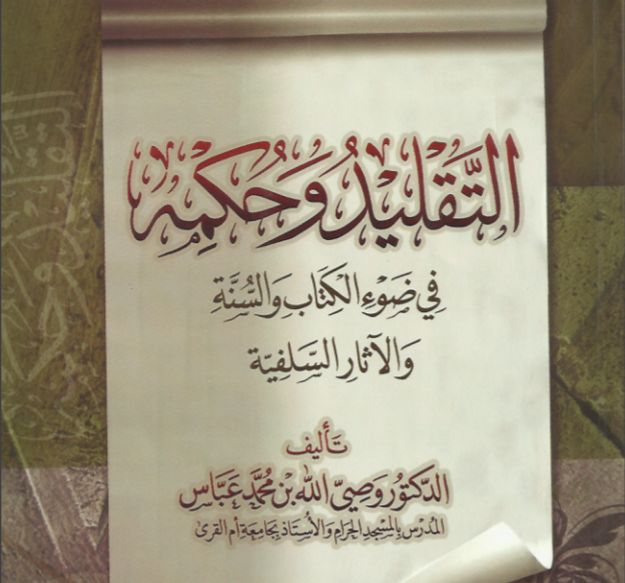 التَّقْلِيدُ وَحُكْمُهُ
فِي ضَوْءِ الْكِتَابِ وَالسُّنَّةِ
وَالآثَارِ السَّلَفِيَّة
تَأليف
الدكتور وصيّ الله بن محمد عباس
المدرس بالمسجد الحرام والأستاذ بجامعة أم القرى